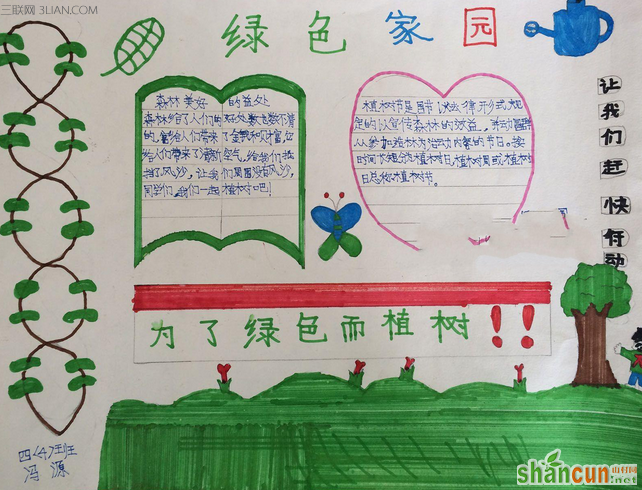 三联网 3LIAN.COM
绿色家园
森林美好 的益处
森林给了人们的好处数也数不清
的,它给人们带来了金钱和财富,它
给人们带来了清新空气,给我们拦
挡了风沙,让我们周围没有风沙,
同学们,我们一起植树吧!
植树节是国 以法律形式规
定的以宣传森林的效益,并动员群
众参加造林为活动内容的节日。按
时间长短分为植树日、植树周或植树月
总称植树节。
让我们赶快行动
为了绿色而植树!!
四〈4〉班
冯源
shancun
山村网
.net